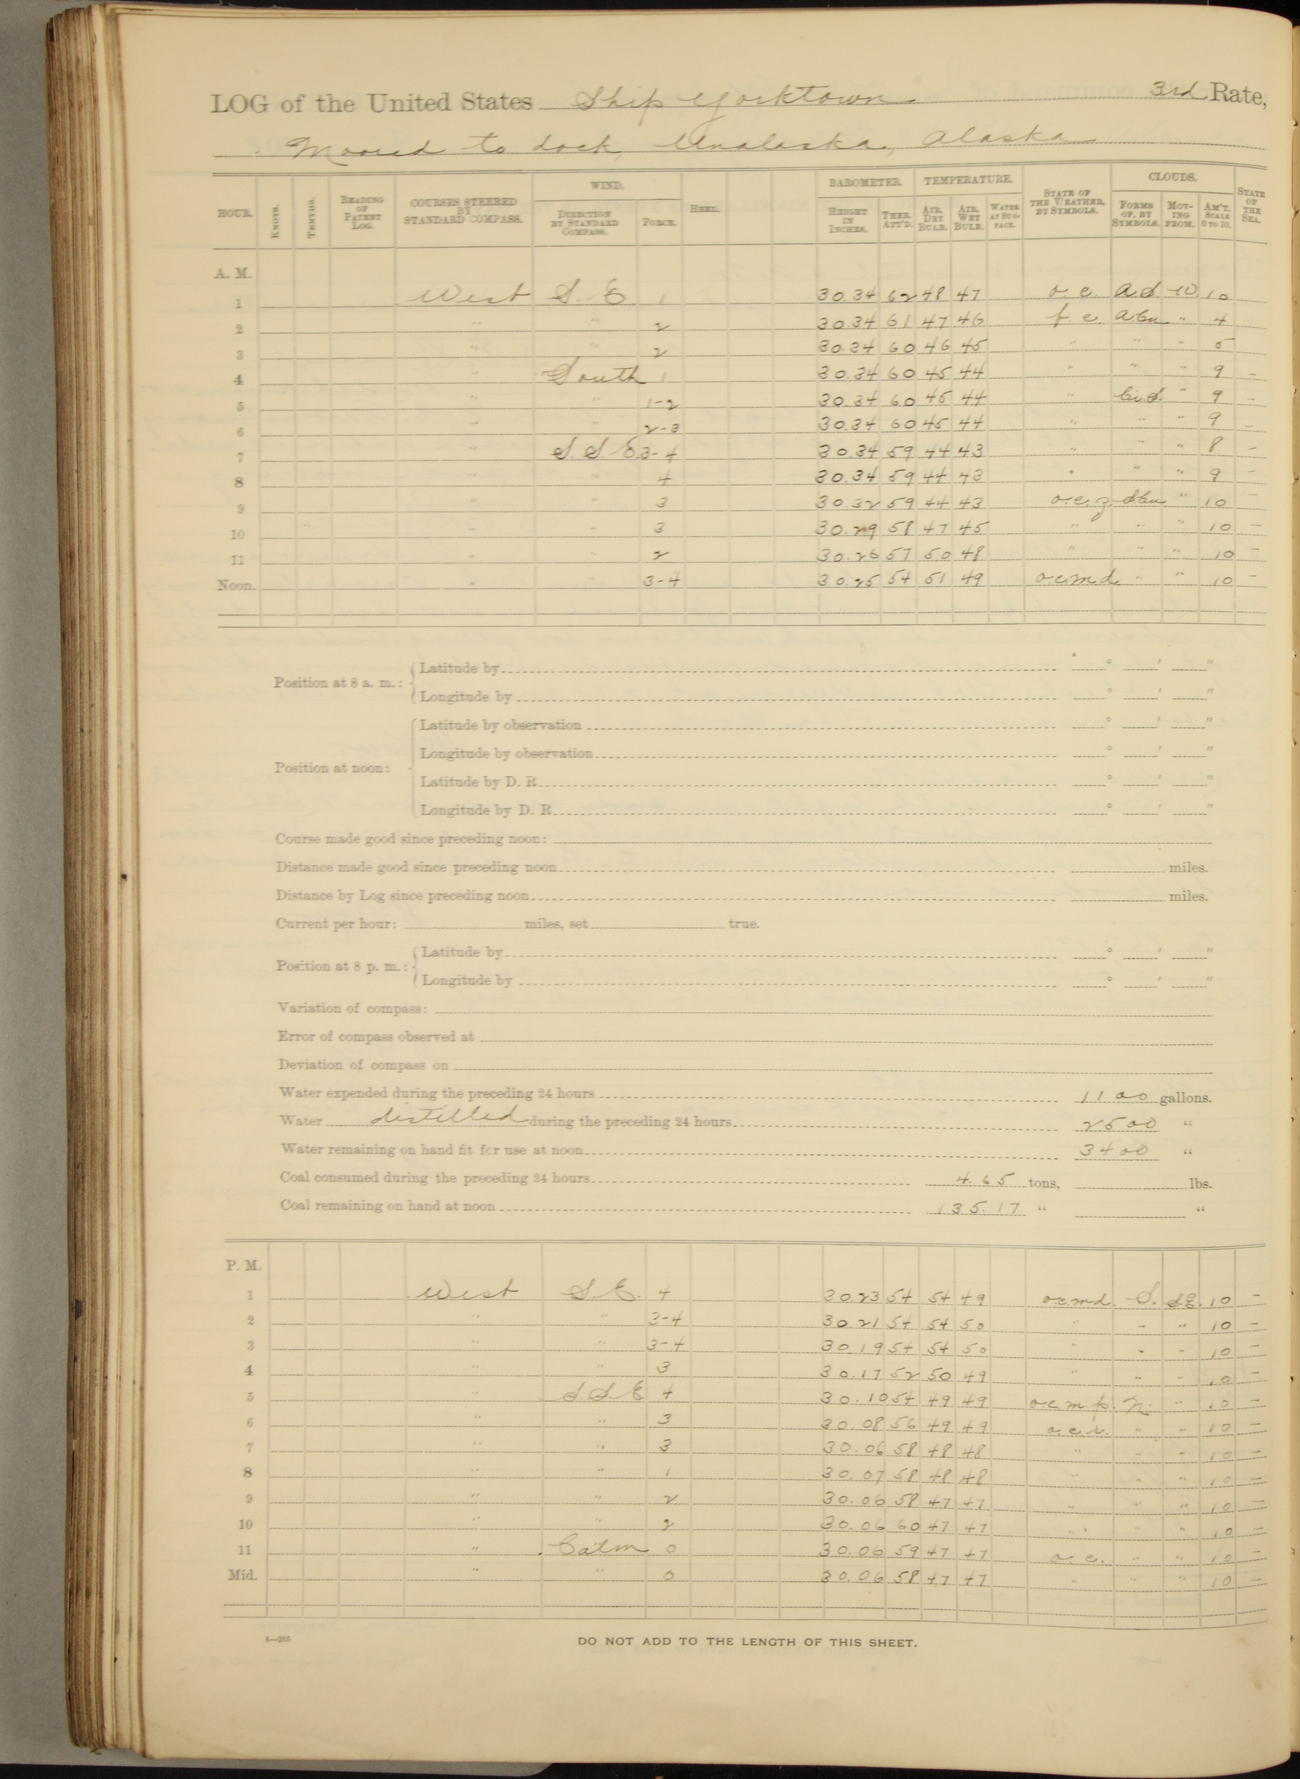 LOG of the United States Ship Yorktown. 3rd Rate,
Moored to dock, Unalaska, Alaska
HOUR. KNOTS. TENTHS. READING OF PATENT LOG. COURSES STEERED BY STANDARD COMPASS. WIND. DIRECTION BY STANDARD COMPASS. FORCE. HEEL. BAROMETER. HEIGHT IN INCHES. THER. ATT'D. TEMPERATURE. AIR, DRY BULB. AIR, WET BULB. WATER AT SURFACE. STATE OF THE WEATHER, BY SYMBOLS. CLOUDS. FORMS OF, BY SYMBOLS. MOVING FROM. AM'T. SCALE 0 TO 10. STATE OF THE SEA.
A. M.
1 West S. E 1 30.34 62 48 47 o. c. W 10
2 " " 2 30.34 61 47 46 f. c. " 4
3 " " 2 30.34 60 46 45 " " " 5
4 " South 1 30.34 60 45 44 " " " 9 -
5 " " 1-2 30.34 60 45 44 " Ci.S. " 9 -
6 " " 2-3 30.34 60 45 44 " " " 9 -
7 " S. S. E. 3-4 30.34 59 44 43 " " " 8 -
8 " " 4 30.34 59 44 43 " " " 9 -
9 " " 3 30.32 59 44 43 o.c.z " 10 -
10 " " 3 30.29 58 47 45 " " " 10 -
11 " " 2 30.26 57 50 48 " " " 10 -
Noon. " " 3-4 30.25 54 51 49 o.c.m.d. " " 10 -
Position at 8 a. m.: Latitude by ° ' "
Longitude by ° ' "
Position at noon: Latitude by observation ° ' "
Longitude by observation ° ' "
Latitude by D. R. ° ' "
Longitude by D. R. ° ' "
Course made good since preceding noon:
Distance made good since preceding noon miles.
Distance by Log since preceding noon miles.
Current per hour: miles, set true.
Position at 8 p. m.: Latitude by ° ' "
Longitude by ° ' "
Variation of compass:
Error of compass observed at
Deviation of compass on
Water expended during the preceding 24 hours 1100 gallons.
Water distilled during the preceding 24 hours 2500 "
Water remaining on hand fit for use at noon 3400 "
Coal consumed during the preceding 24 hours 4.65 tons, lbs.
Coal remaining on hand at noon 135.17 " "
P. M.
1 West S. E. 4 30.23 54 54 49 o.c.m.d. S. S.E. 10 -
2 " " 3-4 30.21 54 54 50 " " " 10 -
3 " " 3-4 30.19 54 54 50 " " " 10 -
4 " " 3 30.17 52 50 49 " " " 10 -
5 " S. S. E 4 30.10 54 49 49 o.c.m.p. N. " 10 -
6 " " 3 30.08 56 49 49 o.c.r. " " 10 -
7 " " 3 30.06 58 48 48 " " " 10 -
8 " " 1 30.07 58 48 48 " " " 10 -
9 " " 2 30.06 58 47 47 " " " 10 -
10 " " 2 30.06 60 47 47 " " " 10 -
11 " Calm 0 30.06 59 47 47 o. c. " " 10 -
Mid. " " 0 30.06 58 47 47 " " " 10 -
DO NOT ADD TO THE LENGTH OF THIS SHEET.